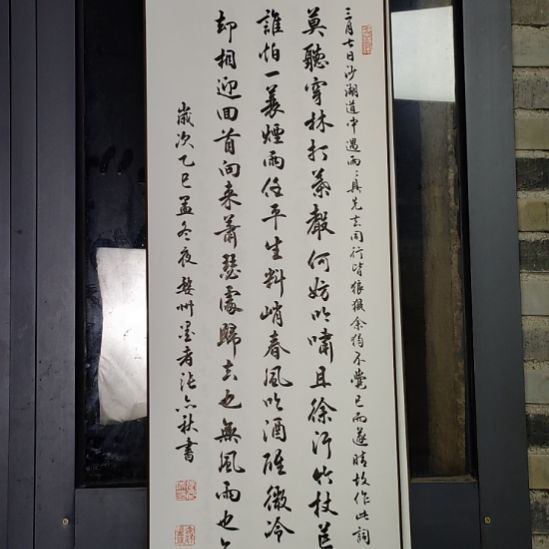 三月七日沙湖道中遇雨〻具先去同行皆狼狽余独不覺已而遂晴故作此詞
莫聽穿林打葉聲何妨吟嘯且徐行竹杖芒
誰怕一蓑煙雨任平生料峭春風吹酒醒微冷
却相迎回首向来蕭瑟處歸去也無風雨也
歲次乙巳孟冬夜婺州墨者秋書